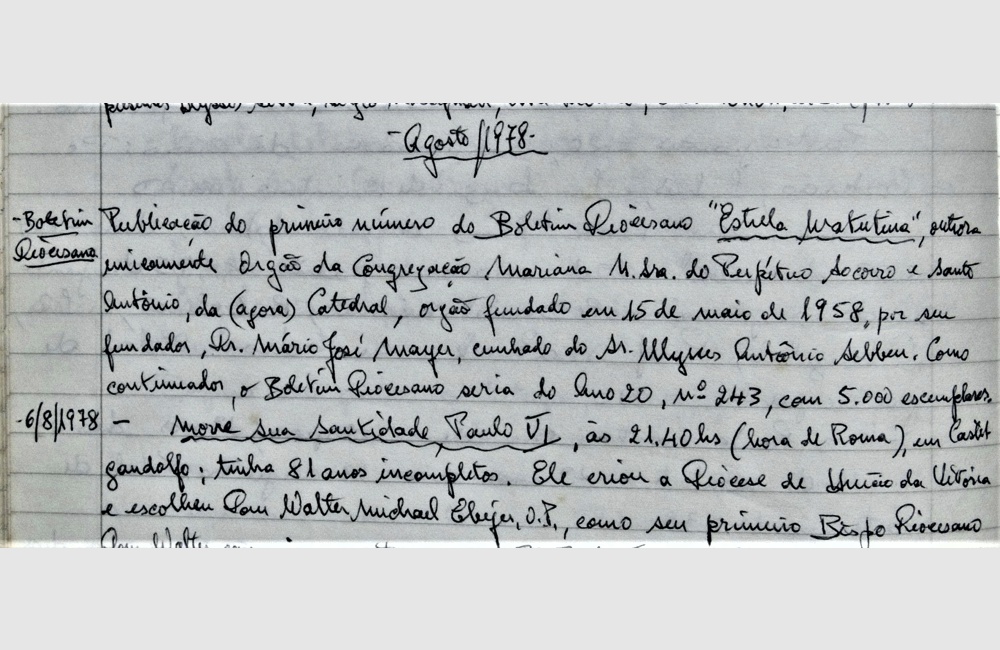 -Agosto/1978-
-Boletim Publicação do primeiro número do Boletim Diocesano "Estrela Matutina", outrora
Diocesano unicamente Orgão da Congregação Mariana N. Sra. do Perpétuo Socorro e Santo
Antônio, da (agora) Catedral, orgão fundado em 15 de maio de 1958, por seu
fundador, Dr. Mário José Mayer, cunhado do Sr. Ulysses Antônio Sebben. Como
continuador, o Boletim Diocesano seria do Ano 20, nº 243, com 5.000 exemplares.
-6/8/1978 - Morre sua Santidade Paulo VI, às 21.40hs (hora de Roma), em Castel
gandolfo; tinha 81 anos incompletos. Ele criou a Diocese de União da Vitória
e escolheu Dom Walter Michael Ebejer, O.P., como seu primeiro Bispo Diocesano
Dom Walter